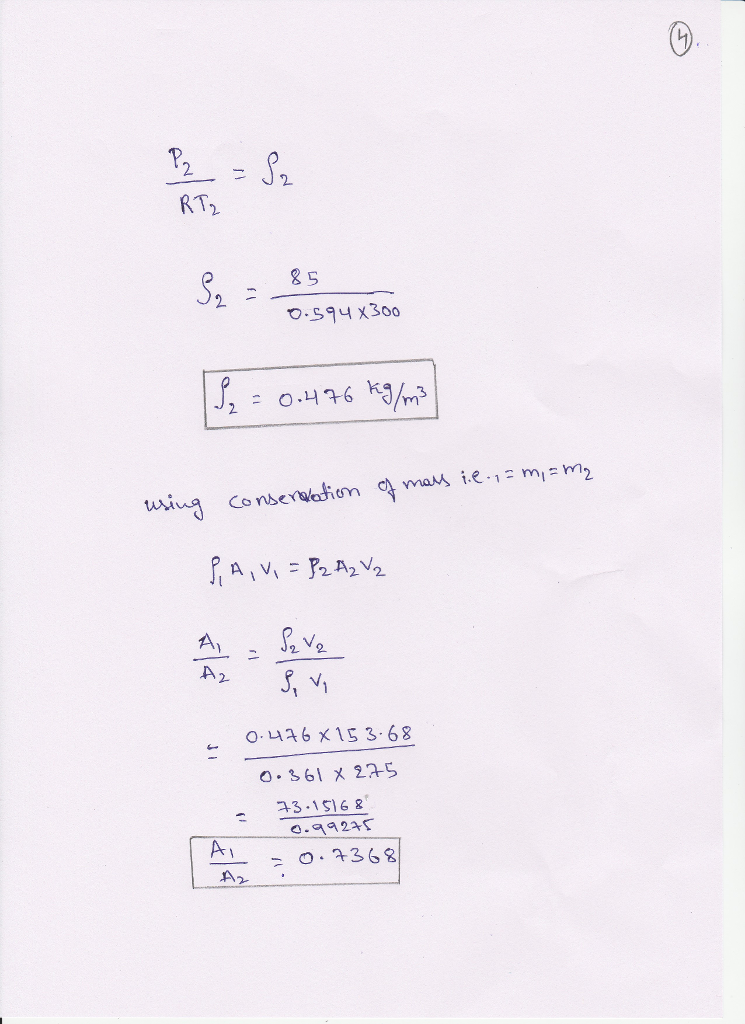 4.
P₂ / RT₂ = ρ₂
ρ₂ = 85 / 0.594 x 300
ρ₂ = 0.476 kg/m³
using conservation of mass i.e., = m₁ = m₂
ρ₁ A₁ V₁ = ρ₂ A₂ V₂
A₁ / A₂ = ρ₂ V₂ / ρ₁ V₁
= 0.476 x 153.68 / 0.361 x 275
= 73.15168 / 0.99275
A₁ / A₂ = 0.7368